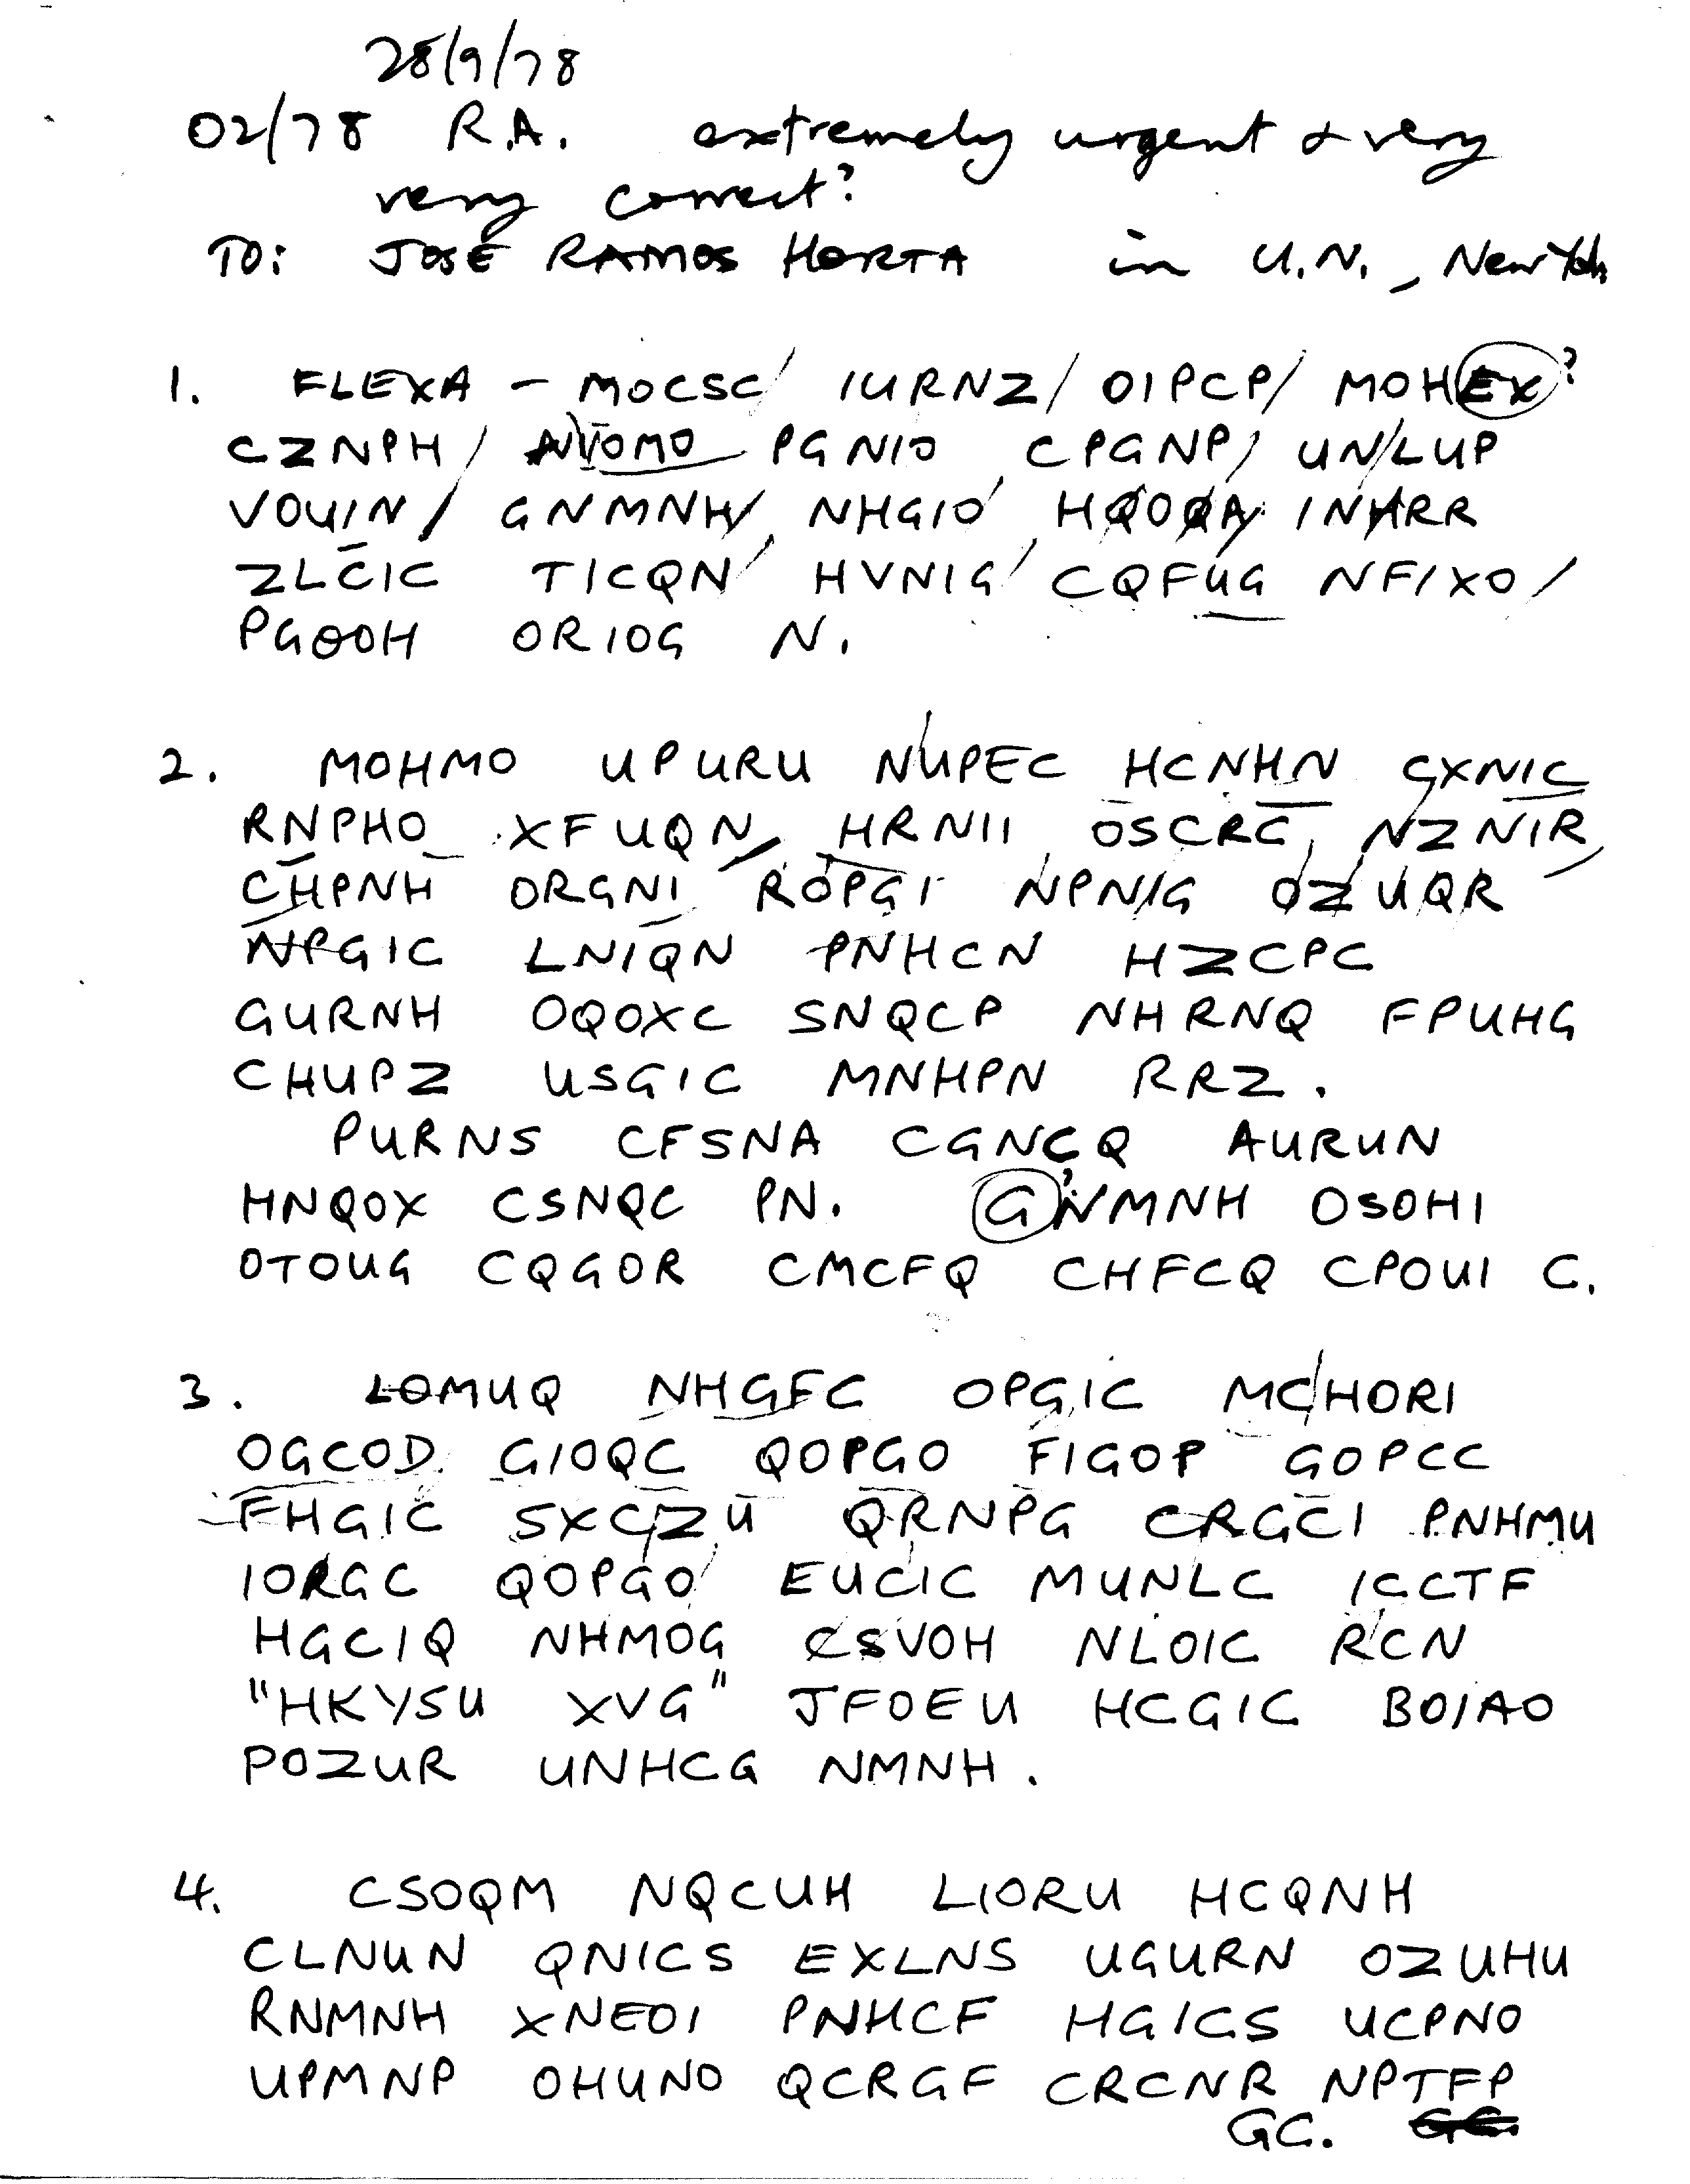 28/9/78
02/78 R.A. extremely urgent & very
very correct?
TO: JOSÉ RAMOS HORTA in U.N., New York
1. FLEXA - MOCSC/ IURNZ/ OIPCP/ MOHEX?
CZNPH/ PGNIO CPGNP/ UN/LUP
VOUIN/ GNMNH/ NHGIO/ INHRR
ZLCIC TICQN/ HVNIG/ CQFUG NFIXO/
PGOOH ORIOG N.
2. MOHMO UPURU NUPEC HCNHN CXNIC
RNPHO XFUQN HRNII OSCRC NZNIR
CHPNH ORGNI ROPGI NPNIG OZUQR
NPGIC LNIQN PNHCN HZCPC
GURNH OQOXC SNQCP NHRNQ FPUHG
CHUPZ USGIC MNHPN RRZ.
PURNS CFSNA CGNCQ AURUN
HNQOX CSNQC PN. G?NMNH OSOHI
OTOUG CQGOR CMCFQ CHFCQ CPOUI C.
3. LOMUQ NHGFC OPGIC MC/HORI
OGCOD GIOQC QOPGO FIGOP GOPCC
FHGIC SXCZU QRNPG CRGCI PNHMU
IORGC QOPGO EUCIC MUNLC ICCTF
HGCIQ NHMOG CSVOH NLOIC RCN
"HKYSU XVG" JFOEU HCGIC BOIAO
POZUR UNHCG NMNH.
4. CSOQM NQCUH LIORU HCQNH
CLNUN QNICS EXLNS UGURN OZUHU
RNMNH XNEOI PNHCF HGICS UCPNO
UPMNP OHUNO QCRGF CRCNR NPTFP
GC.